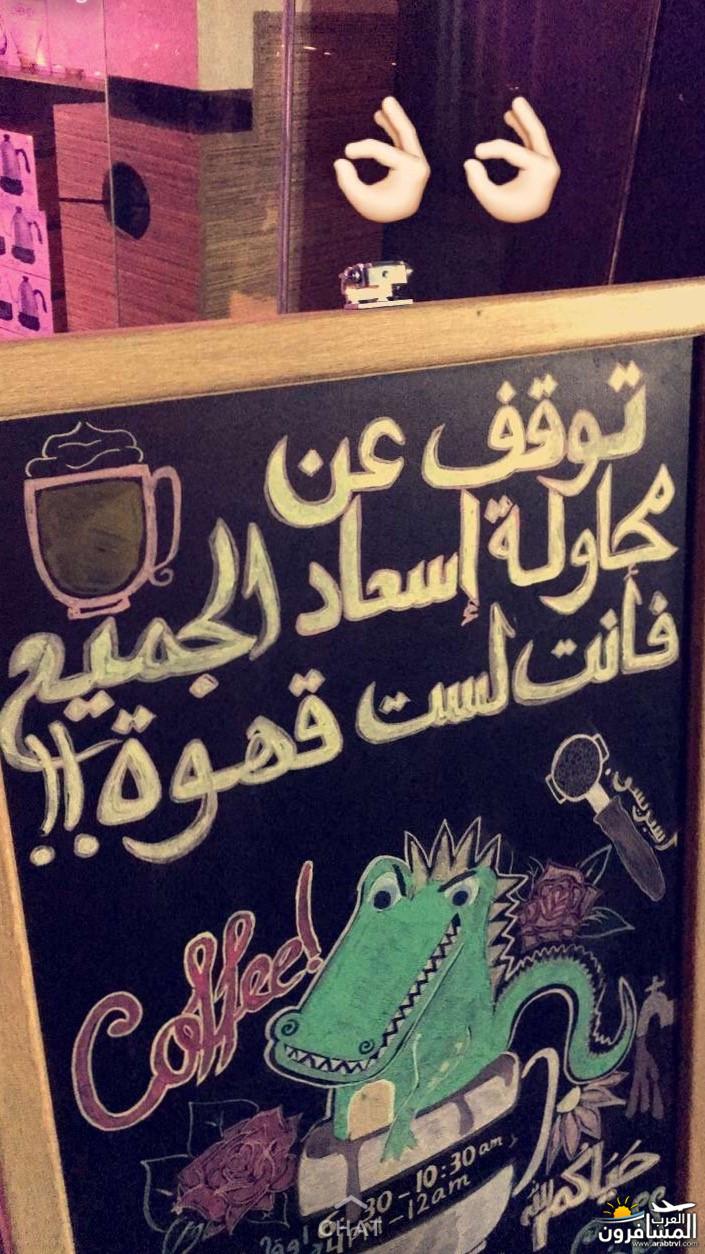 توقف عن
محاولة إسعاد الجميع
فأنت لست قهوة!!
اسبريسو
Coffee!
30 - 10:30 am
4PM - 12am
حياكم الله
CHAT
العرب
المسافرون
www.arabtrvl.com